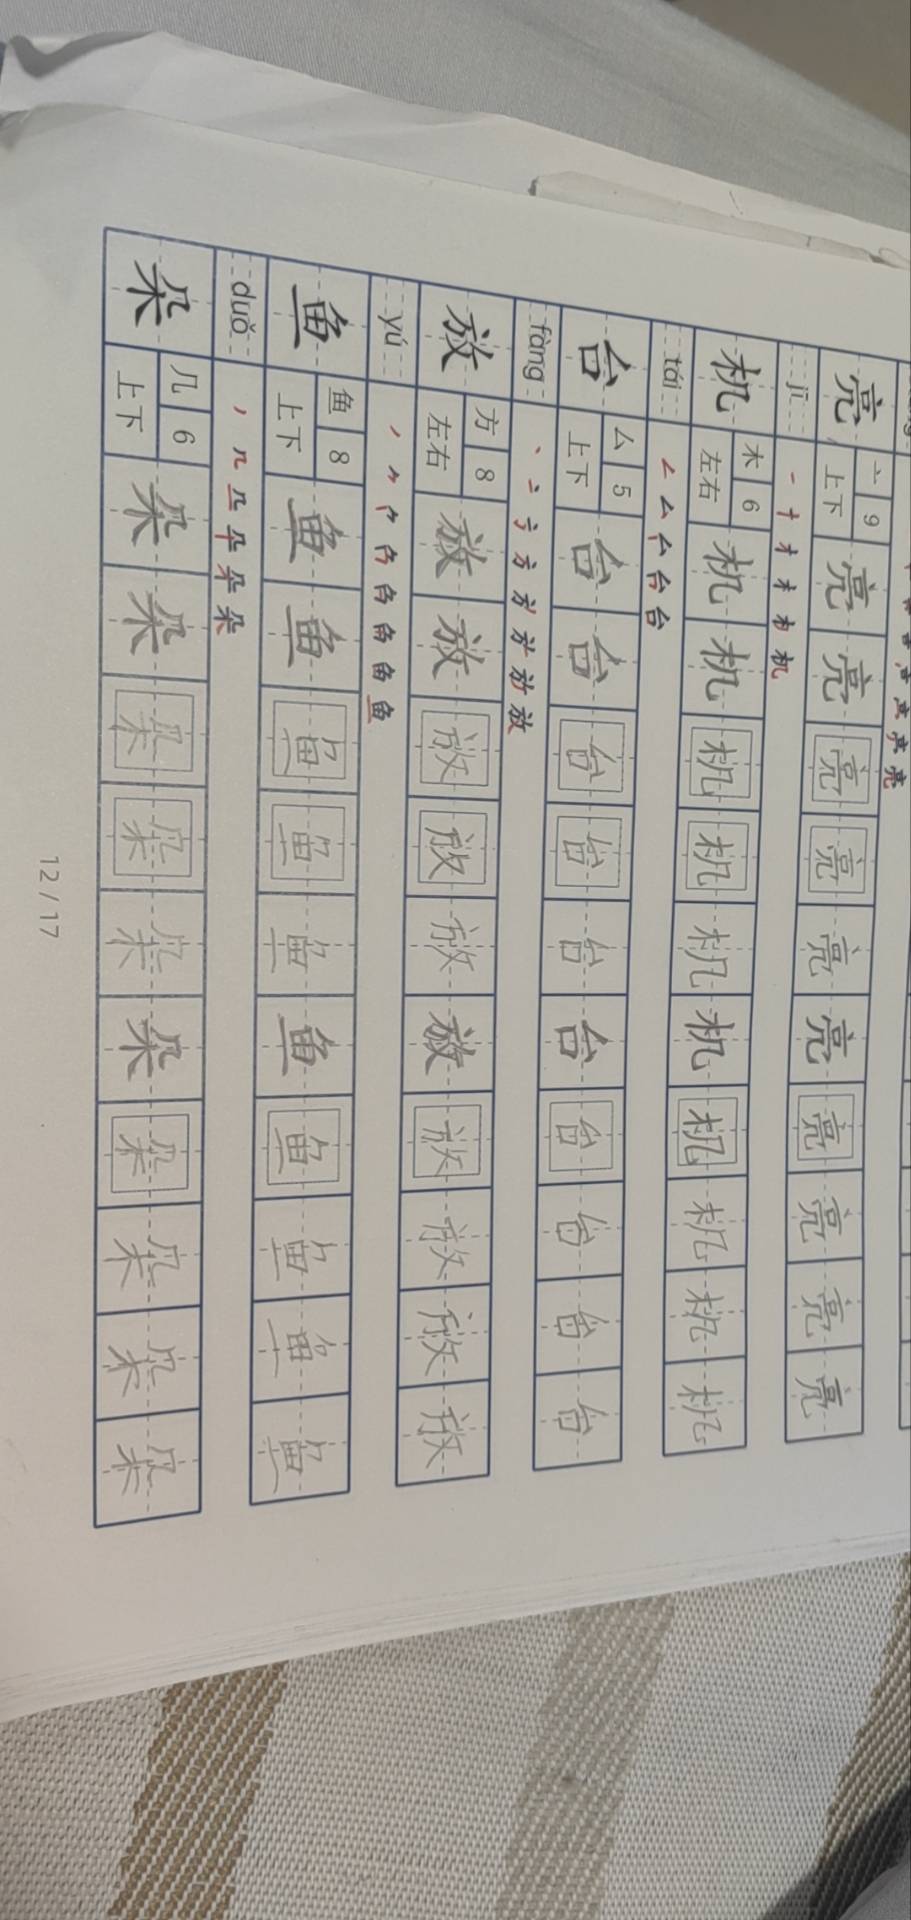 亮 亠 9 上下 亮 亮 亮 亮 亮 亮 亮 亮 亮 亮
jī 一 十 木 机
机 木 6 左右 机 机 机 机 机 机 机 机 机 机
tái 厶 台
台 厶 5 上下 台 台 台 台 台 台 台 台 台 台
fàng 丶 亠 方 放
放 方 8 左右 放 放 放 放 放 放 放 放 放 放
yú 丿 鱼
鱼 鱼 8 上下 鱼 鱼 鱼 鱼 鱼 鱼 鱼 鱼 鱼 鱼
duǒ 丿 几 朵
朵 几 6 上下 朵 朵 朵 朵 朵 朵 朵 朵 朵 朵
12/17